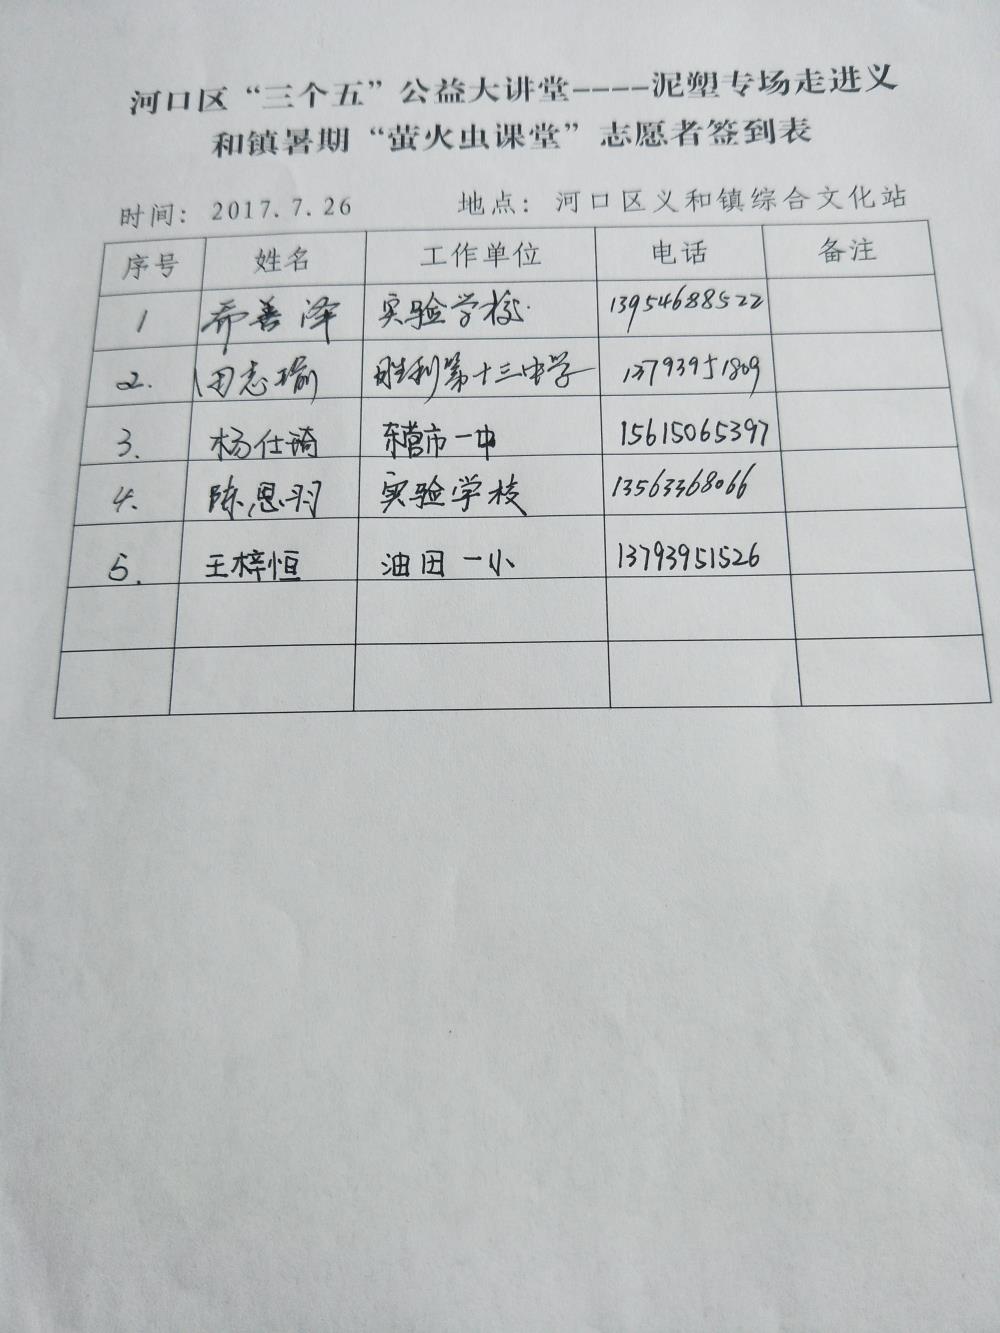 河口区“三个五”公益大讲堂----泥塑专场走进义
和镇暑期“萤火虫课堂”志愿者签到表
时间：2017.7.26 地点：河口区义和镇综合文化站
序号 姓名 工作单位 电话 备注
1 乔善泽 实验学校 13954688522
2. 田志瑜 胜利第十三中学 13793951809
3. 杨仕琦 东营市一中 15615065397
4. 陈恩羽 实验学校 13563368066
5. 王梓恒 油田一小 13793951526